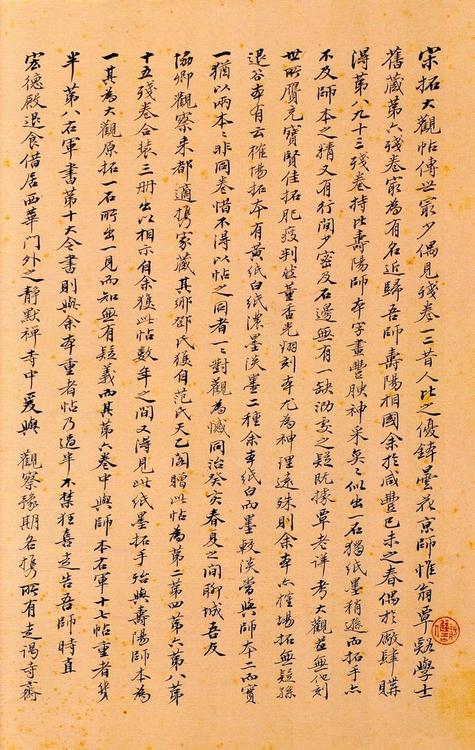 宋拓大觀帖傳世寂少偶見殘卷一二昔人比之優鉢曇花京師惟翁覃谿學士
舊藏第六殘卷寂為有名近歸吾師壽陽相國余於咸豐己未之春偶於廠肆購
得第八九十三殘卷持比壽陽師本字畫豐腴神采奕〻似出一石獨紙墨稍遜而拓手亦
不及師本之精又有行間少密及石邊無有一缺泐處之疑既據覃老譜考大觀並無他刻
世所贋元寶賢佳拓肥瘦判然董香光翻刻本尤為神理遠殊則余本亦榷場拓無疑孫
退谷本有云榷陽拓本有黃紙白紙濃墨淡墨二種余本紙白而墨較淡當與師本二而實
一猶以兩本〻非同卷惜不得以帖之同者一〻對觀為憾同治癸亥春夏之間聊城吾友
協卿觀察來都適攜家藏其鄉鄧氏獲自范氏天乙閣贈此帖為第二第四第六第八第
十五殘卷合裝三冊出以相示自余獲此帖數年之間又得見此紙墨拓手殆與壽陽師本為
一其為大觀原拓一石所出一見而知無有疑義而其第六卷中與師本右軍十七帖重者幾
半第八右軍書第十大令書則與余本重者帖乃過半不禁狂喜走告吾師時直
宏德殿退食借居西華門外之靜默禪寺中爰與觀察豫期各攜所有走謁寺齋